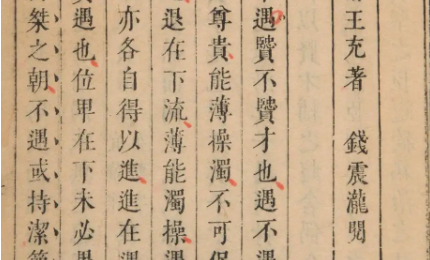 王充著　錢震瀧閱
遇贒不贒才也遇不遇
尊貴能薄操濁不可保
退在下流薄能濁操遇
亦各自得以進進在遇
遇也位卑在下未必
桀之朝不遇或持潔